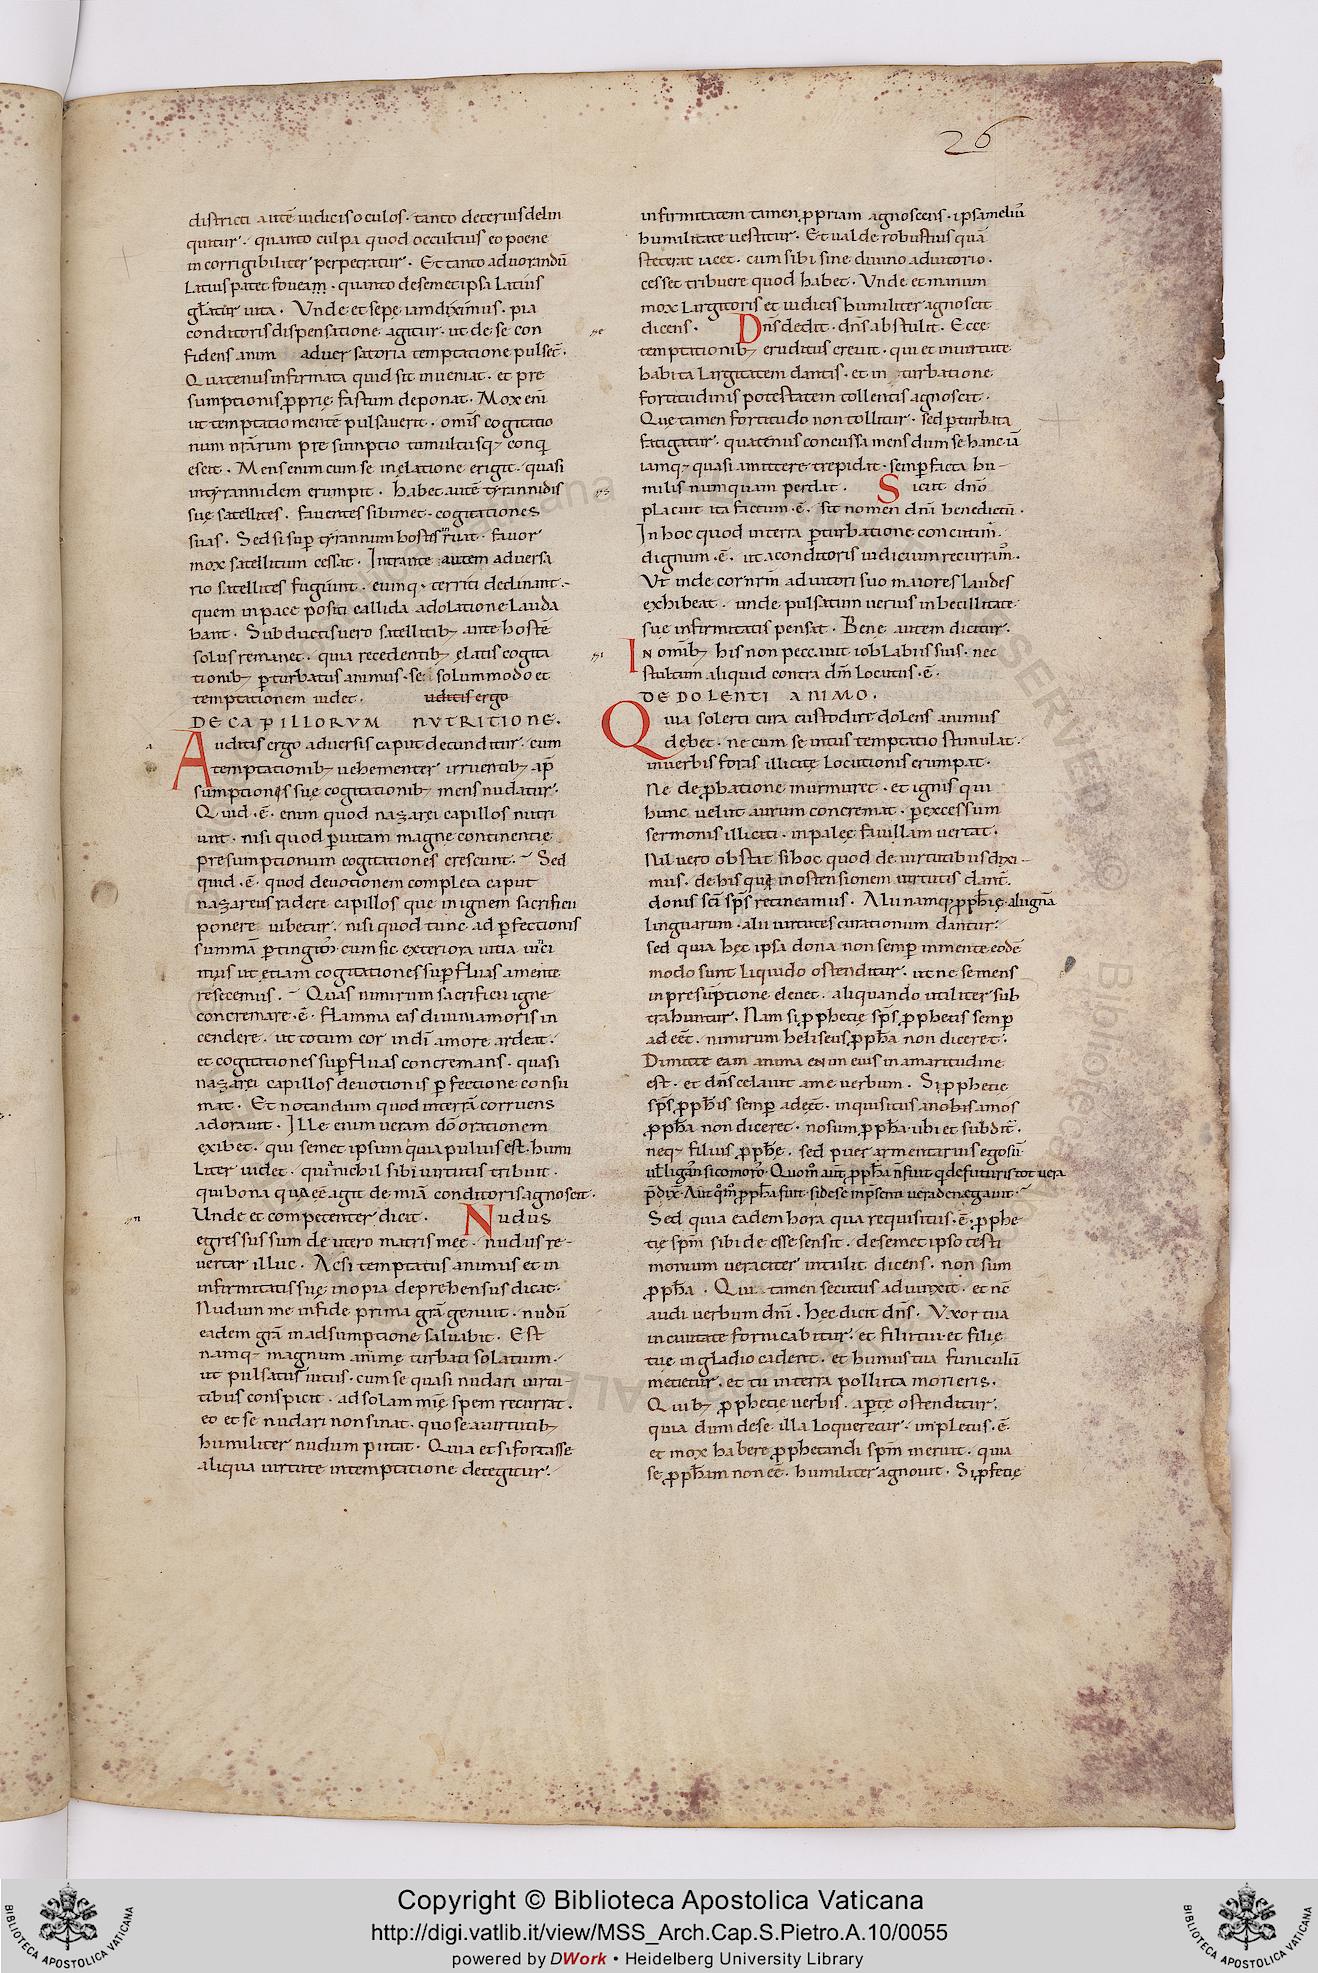 26
districti autē iudicis oculos · tanto deterius delin
quitur · quanto culpa quod occultius eo poene
incorrigibiliter perpetratur · Et tanto ad uorandū
latius patet foueam · quanto de semet ipsa latius
gl̄atur uita · Vnde et sepe iam diximus · pia
conditoris dispensatione agitur · ut de se con
fidens anim aduersatoria temptatione pulset̄ ·
Quatenus infirmata quid sit inueniat · et pre
sumptionis ꝓprię fastum deponat · Mox eni
ut temptatio mentē pulsauerit · om̄is cogitatio
num nr̄arum presumptio tumultusq; conq
escit · Mens enim cum se in elatione erigit · quasi
in tyrannidem erumpit · habet autē tyrannidis
suę satellites · fauentes sibimet · cogitationes
suas · Sed si suꝑ tyrannum hostis irruat · fauor
mox satellitum cessat · Intrante autem aduersa
rio satellites fugiunt · eumq· territi declinant ·
quem in pace positi callida adolatione lauda
bant · Subductis uero satellitib; ante hostē
solus remanet · quia recedentib; elatis cogita
tionib; ꝑturbatus animus · se solummodo et
temptationem uidet · uditis ergo
DE CAPILLORVM NVTRITIONE.
Auditis ergo aduersis caput detunditur · cum
temptationib; uehementer irruentib; a ꝑ
sumptiones suę cogitationib; mens nudatur ·
Quid · ē · enim quod nazarei capillos nutri
unt · nisi quod ꝑ uitam magne continentię
presumptionum cogitationes crescunt · Sed
quid · ē · quod deuotionem completa caput
nazareus radere capillos que in ignem sacrificii
ponere iubetur · nisi quod tunc ad ꝑfectionis
summā ꝑtingim̄ · cum sic exteriora uitia uici
mus ut etiam cogitationes suꝑfluas a mente
resecemus · Quas nimirum sacrificii igne
concremare · ē · flamma eas diuini amoris in
cendere · ut totum cor in dī amore ardeat ·
et cogitationes suꝑfluas concremans · quasi
nazarei capillos deuotionis ꝑfectione consu
mat · Et notandum quod in terrā corruens
adorauit · Ille enim ueram dō orationem
exibet · qui semet ipsum quia puluis est · humi
liter uidet · qui nichil sibi uirtutis tribuit ·
qui bona quę agit de mīa conditoris agnoscit ·
Unde et competenter dicit · Nudus
egressus sum de utero matris meę · nudus re-
uertar illuc · Acsi temptatus animus et in
infirmitatis suę inopia deprehensus dicat ·
Nudum me in fide prima gr̄a genuit · nudū
eadem gr̄a in adsumptione saluabit · Est
namq· magnum animę turbati solatium ·
ut pulsatus uitiis · cum se quasi nudari uirtu-
tibus conspicit · ad solam mīę spem recurrat ·
eo et se nudari non sinat · quo se a uirtutib;
humiliter nudum putat · Quia et si fortasse
aliqua uirtute in temptatione detegitur ·
infirmitatem tamen ꝓpriam agnoscens · ipsa meliū
humilitate uestitur · Et ualde robustius quā
steterat iacet · cum sibi sine diuino adiutorio ·
cesset tribuere quod habet · Vnde et manum
mox largitoris et iudicis humiliter agnoscit
dicens · Dn̄s dedit · dn̄s abstulit · Ecce
temptationib; eruditus creuit · qui et in uirtute
habita largitatem dantis · et in turbatione
fortitudinis potestatem tollentis agnoscit ·
Que tamen fortitudo non tollitur · sed ꝑturbata
fatigatur · quatenus concussa mens dum se hanc iā
iamq; quasi amittere trepidat · semꝑ facta hu-
milis numquam perdat · Sicut dn̄o
placuit ita factum · ē · sit nomen dn̄i benedictū ·
In hoc quod in terra ꝑturbatione concutim̄ ·
dignum · ē · ut a conditoris iudicium recurram̄ ·
Ut inde cor nr̄m adiutori suo maiores laudes
exhibeat · unde pulsatum uerius inbecillitate
suę infirmitatis pensat · Bene autem dicitur ·
In om̄ib; his non peccauit iob labiis suis · nec
stultum aliquid contra dm̄ locutus · ē ·
DE DOLENTI ANIMO.
Quia solerti cura custodire dolens animus
debet · ne cum se intus temptatio stimulat ·
in uerbis foras illicitę locutionis erumpat ·
Ne de ꝓbatione murmuret · et ignis qui
hunc uelut aurum concremat · ꝑ excessum
sermonis illiciti · in palee fauillam uertat ·
Nil uero obstat si hoc quod de uirtutibus dixi-
mus · de his quę in ostensionem uirtutis dant̄ ·
donis sc̄i sp̄s retineamus · Alii namq; ꝓph̄ię · alii gn̄a
linguarum · alii uirtutes curationum dantur ·
sed quia hęc ipsa dona non semꝑ in mente eodē
modo sunt liquido ostenditur · ut ne se mens
in presūptione eleuet · aliquando utiliter sub
trahuntur · Nam si ꝓphetię sp̄s ꝓphetis semꝑ
adeēt · nimirum heliseus ꝓph̄a non diceret ·
Dimitte eam anima enim eius in amaritudine
est · et dn̄s celauit a me uerbum · Si ꝓphetię
sp̄s ꝓph̄is semꝑ adeēt · inquisitus a nobis amos
ꝓph̄a non diceret · no sum ꝓph̄a · ubi et subdit̄ ·
neq; filius ꝓph̄ę · sed puer armentarius ego sū
uellicans sicomoros · Quom̄ aut̄ ꝓph̄a n̄ fuit q̄ de futuris tot uera
p̄dix̄ · Aut q̄m̄ ꝓph̄a fuit · si de se in p̄senti uera denegauit ·
Sed quia eadem hora qua requisitus · ē · ꝓphe
tię sp̄m sibi de esse sensit · de semet ipso testi
monium ueraciter intulit dicens · non sum
ꝓph̄a · Qui tamen secutus adiunxit · et nc̄
audi uerbum dn̄i · Hec dicit dn̄s · Vxor tua
in ciuitate fornicabitur · et filii tui et filię
tue in gladio cadent · et humus tua funiculū
metietur · et tu in terra polluta morieris ·
Quib; ꝓphetię uerbis · aꝑte ostenditur ·
quia dum de se illa loqueretur · impletus · ē ·
et mox habere ꝓphetandi sp̄m meruit · quia
se ꝓph̄am non eē · humiliter agnouit · Si ꝓfetię
Copyright © Biblioteca Apostolica Vaticana
http://digi.vatlib.it/view/MSS_Arch.Cap.S.Pietro.A.10/0055
powered by DWork • Heidelberg University Library
BIBLIOTECA APOSTOLICA VATICANA
BIBLIOTECA APOSTOLICA VATICANA